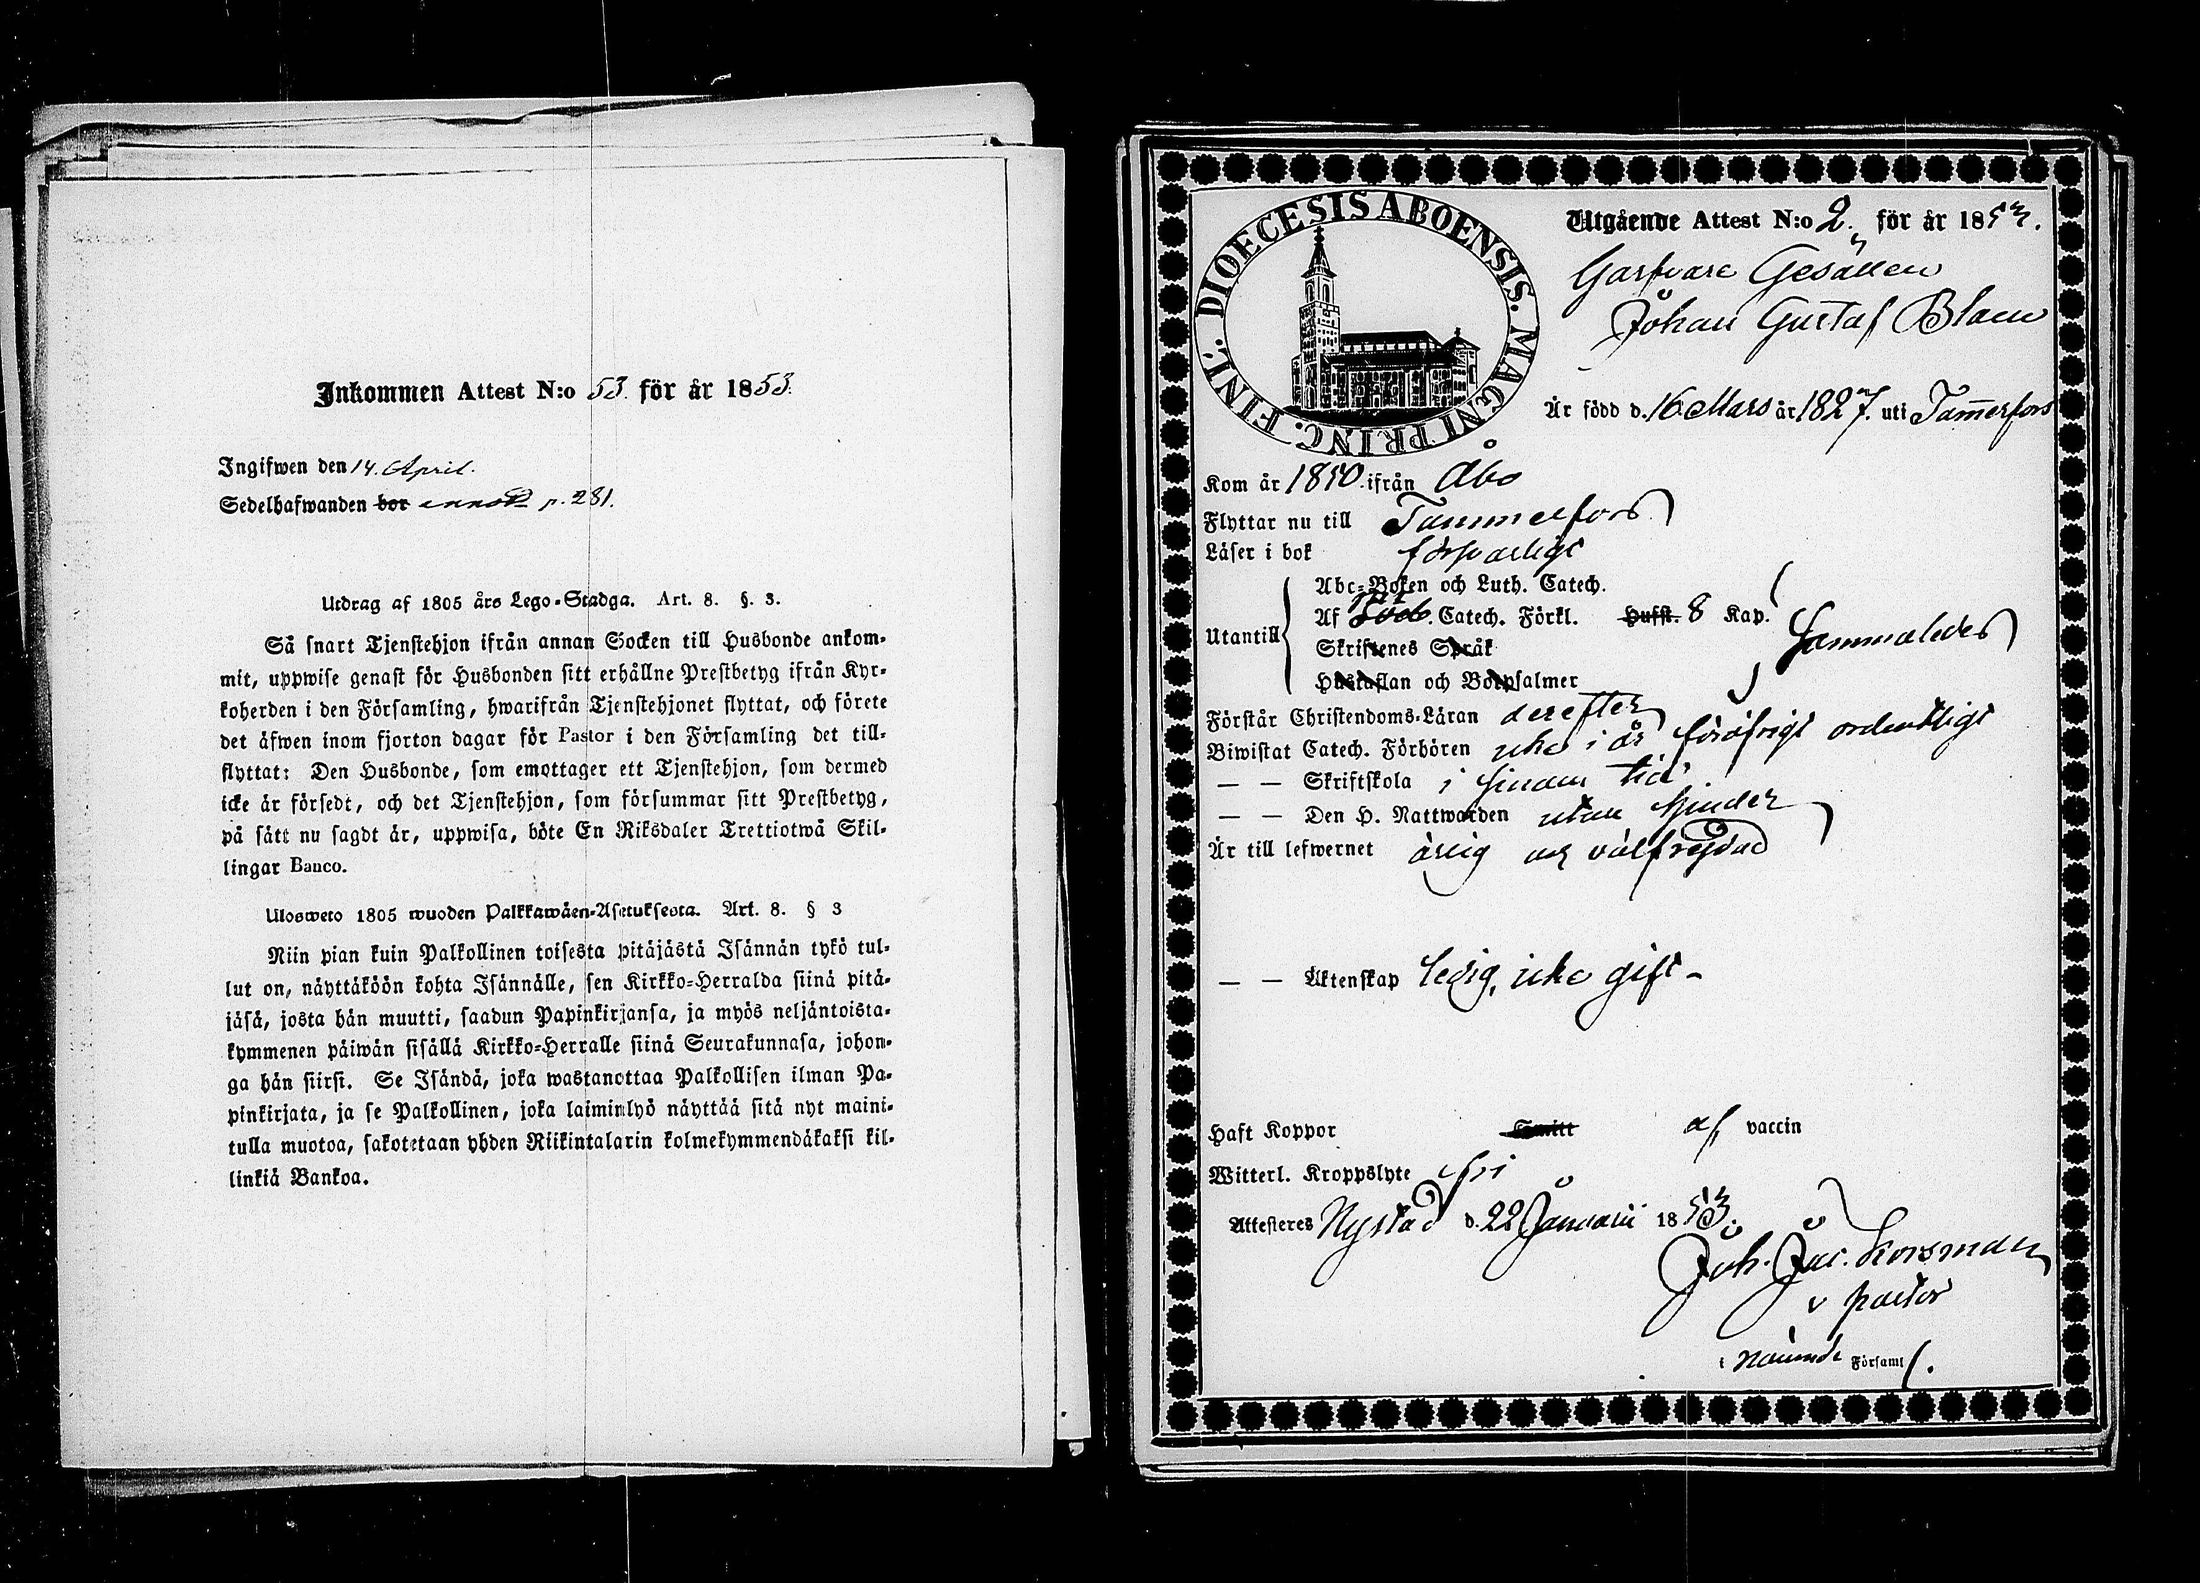 Inkommen Attest N:o 53. för år 1853.
Ingifwen den 14. April.
Sedelhafwanden bor annot. p. 281.
Utdrag af 1805 års Lego-Stadga. Art. 8. §. 3.
Så snart Tjenstehjon ifrån annan Socken till Husbonde ankom-
mit, uppwise genast för Husbonden sitt erhållne Prestbetyg ifrån Kyr-
koherden i den Församling, hwarifrån Tjenstehjonet flyttat, och förete
det äfwen inom fjorton dagar för Pastor i den Församling det till-
flyttat: Den Husbonde, som emottager ett Tjenstehjon, som dermed
icke är försedt, och det Tjenstehjon, som försummar sitt Prestbetyg,
på sätt nu sagdt är, uppwisa, böte En Riksdaler Trettiotwå Skil-
lingar Banco.
Ulosweto 1805 wuoden Palkkawäen-Asetuksesta. Art. 8. § 3
Niin pian kuin Palkollinen toisesta pitäjästä Isännän tykö tul-
lut on, näyttäköön kohta Isännälle, sen Kirkko-Herralda siinä pitä-
jäsä, josta hän muutti, saadun Papinkirjansa, ja myös neljäntoista-
kymmenen päiwän sisällä Kirkko-Herralle siinä Seurakunnasa, johon-
ga hän siirsi. Se Isändä, joka wastanottaa Palkollisen ilman Pa-
pinkirjata, ja se Palkollinen, joka laiminlyö näyttää sitä nyt maini-
tulla muotoa, sakotetaan yhden Riikintalarin kolmekymmendäkaksi kil-
linkiä Bankoa.
DIOECESIS ABOENSIS. MAGNI PRINC. FINL.
Utgående Attest N:o 2. för år 1853.
Garfvare Gesällen
Johan Gustaf Blom
Är född d. 16 Mars år 1827. uti Tammerfors
Kom år 1850. ifrån Åbo
Flyttar nu till Tammerfors
Läser i bok försvarligt
Abc-Boken och Luth. Catech.
Utantill Af Catech. Förkl. Hufst. 8 Kap. sammaledes
Skriftenes Språk
Hustaflan och Botpsalmer
Förstår Christendoms-Läran derefter
Biwistat Catech. Förhören icke i år, föröfrigt ordentligt
— — Skriftskola i sinom tid
— — Den H. Nattwarden utan hinder
Är till lefwernet ärlig och välfrejdad
— — Äktenskap ledig, icke gift -
Haft Koppor Smitt af vaccin
Witterl. Kroppslyte fri
Attesteres Nystad d. 22 Januarii 1853.
Joh. Jac. Korsman
v pastor
i nämnde Församl.